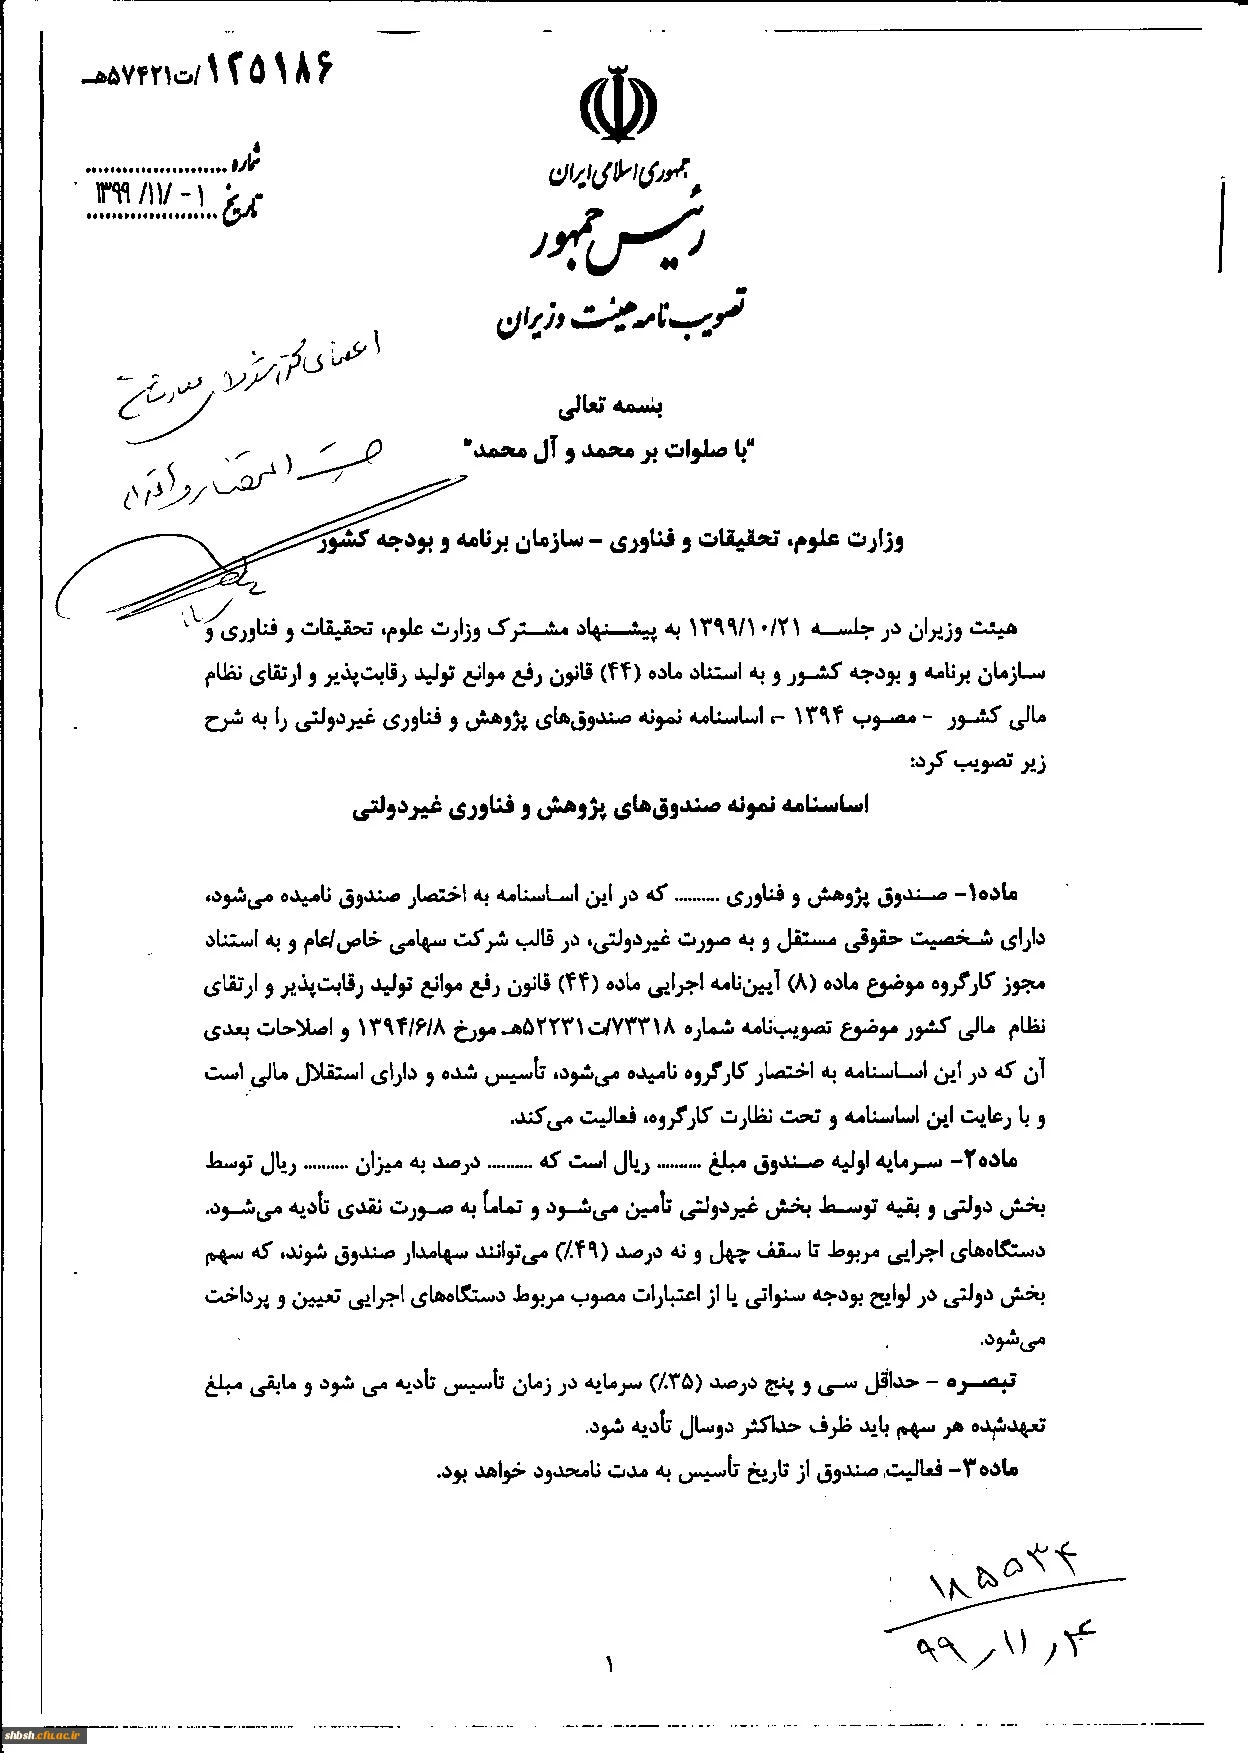 ۱۲۵۱۸۶/ت۵۷۴۲۱هـ
شماره
تاریخ ۱۳۹۹/۱۱/۰۱
جمهوری اسلامی ایران
رئیس جمهور
تصویب نامه هیئت وزیران
بسمه تعالی
"با صلوات بر محمد و آل محمد"
وزارت علوم، تحقیقات و فناوری – سازمان برنامه و بودجه کشور
هیئت وزیران در جلسه ۱۳۹۹/۱۰/۲۱ به پیشنهاد مشترک وزارت علوم، تحقیقات و فناوری و
سازمان برنامه و بودجه کشور و به استناد ماده (۴۴) قانون رفع موانع تولید رقابت‌پذیر و ارتقای نظام
مالی کشور - مصوب ۱۳۹۴ -، اساسنامه نمونه صندوق‌های پژوهش و فناوری غیردولتی را به شرح
زیر تصویب کرد:
اساسنامه نمونه صندوق‌های پژوهش و فناوری غیردولتی
ماده۱- صندوق پژوهش و فناوری .......... که در این اساسنامه به اختصار صندوق نامیده می‌شود،
دارای شخصیت حقوقی مستقل و به صورت غیردولتی، در قالب شرکت سهامی خاص/عام و به استناد
مجوز کارگروه موضوع ماده (۸) آیین‌نامه اجرایی ماده (۴۴) قانون رفع موانع تولید رقابت‌پذیر و ارتقای
نظام مالی کشور موضوع تصویب‌نامه شماره ۷۳۳۱۸/ت۵۲۲۳۱هـ مورخ ۱۳۹۴/۶/۸ و اصلاحات بعدی
آن که در این اساسنامه به اختصار کارگروه نامیده می‌شود، تأسیس شده و دارای استقلال مالی است
و با رعایت این اساسنامه و تحت نظارت کارگروه، فعالیت می‌کند.
ماده۲- سرمایه اولیه صندوق مبلغ .......... ریال است که .......... درصد به میزان .......... ریال توسط
بخش دولتی و بقیه توسط بخش غیردولتی تأمین می‌شود و تماماً به صورت نقدی تأدیه می‌شود.
دستگاه‌های اجرایی مربوط تا سقف چهل و نه درصد (۴۹٪) می‌توانند سهامدار صندوق شوند، که سهم
بخش دولتی در لوایح بودجه سنواتی یا از اعتبارات مصوب مربوط دستگاه‌های اجرایی تعیین و پرداخت
می‌شود.
تبصره - حداقل سی و پنج درصد (۳۵٪) سرمایه در زمان تأسیس تأدیه می شود و مابقی مبلغ
تعهدشده هر سهم باید ظرف حداکثر دوسال تأدیه شود.
ماده۳- فعالیت صندوق از تاریخ تأسیس به مدت نامحدود خواهد بود.
۱۸۵۵۳۴
۹۹/۱۱/۴
۱
shbsh.cfu.ac.ir